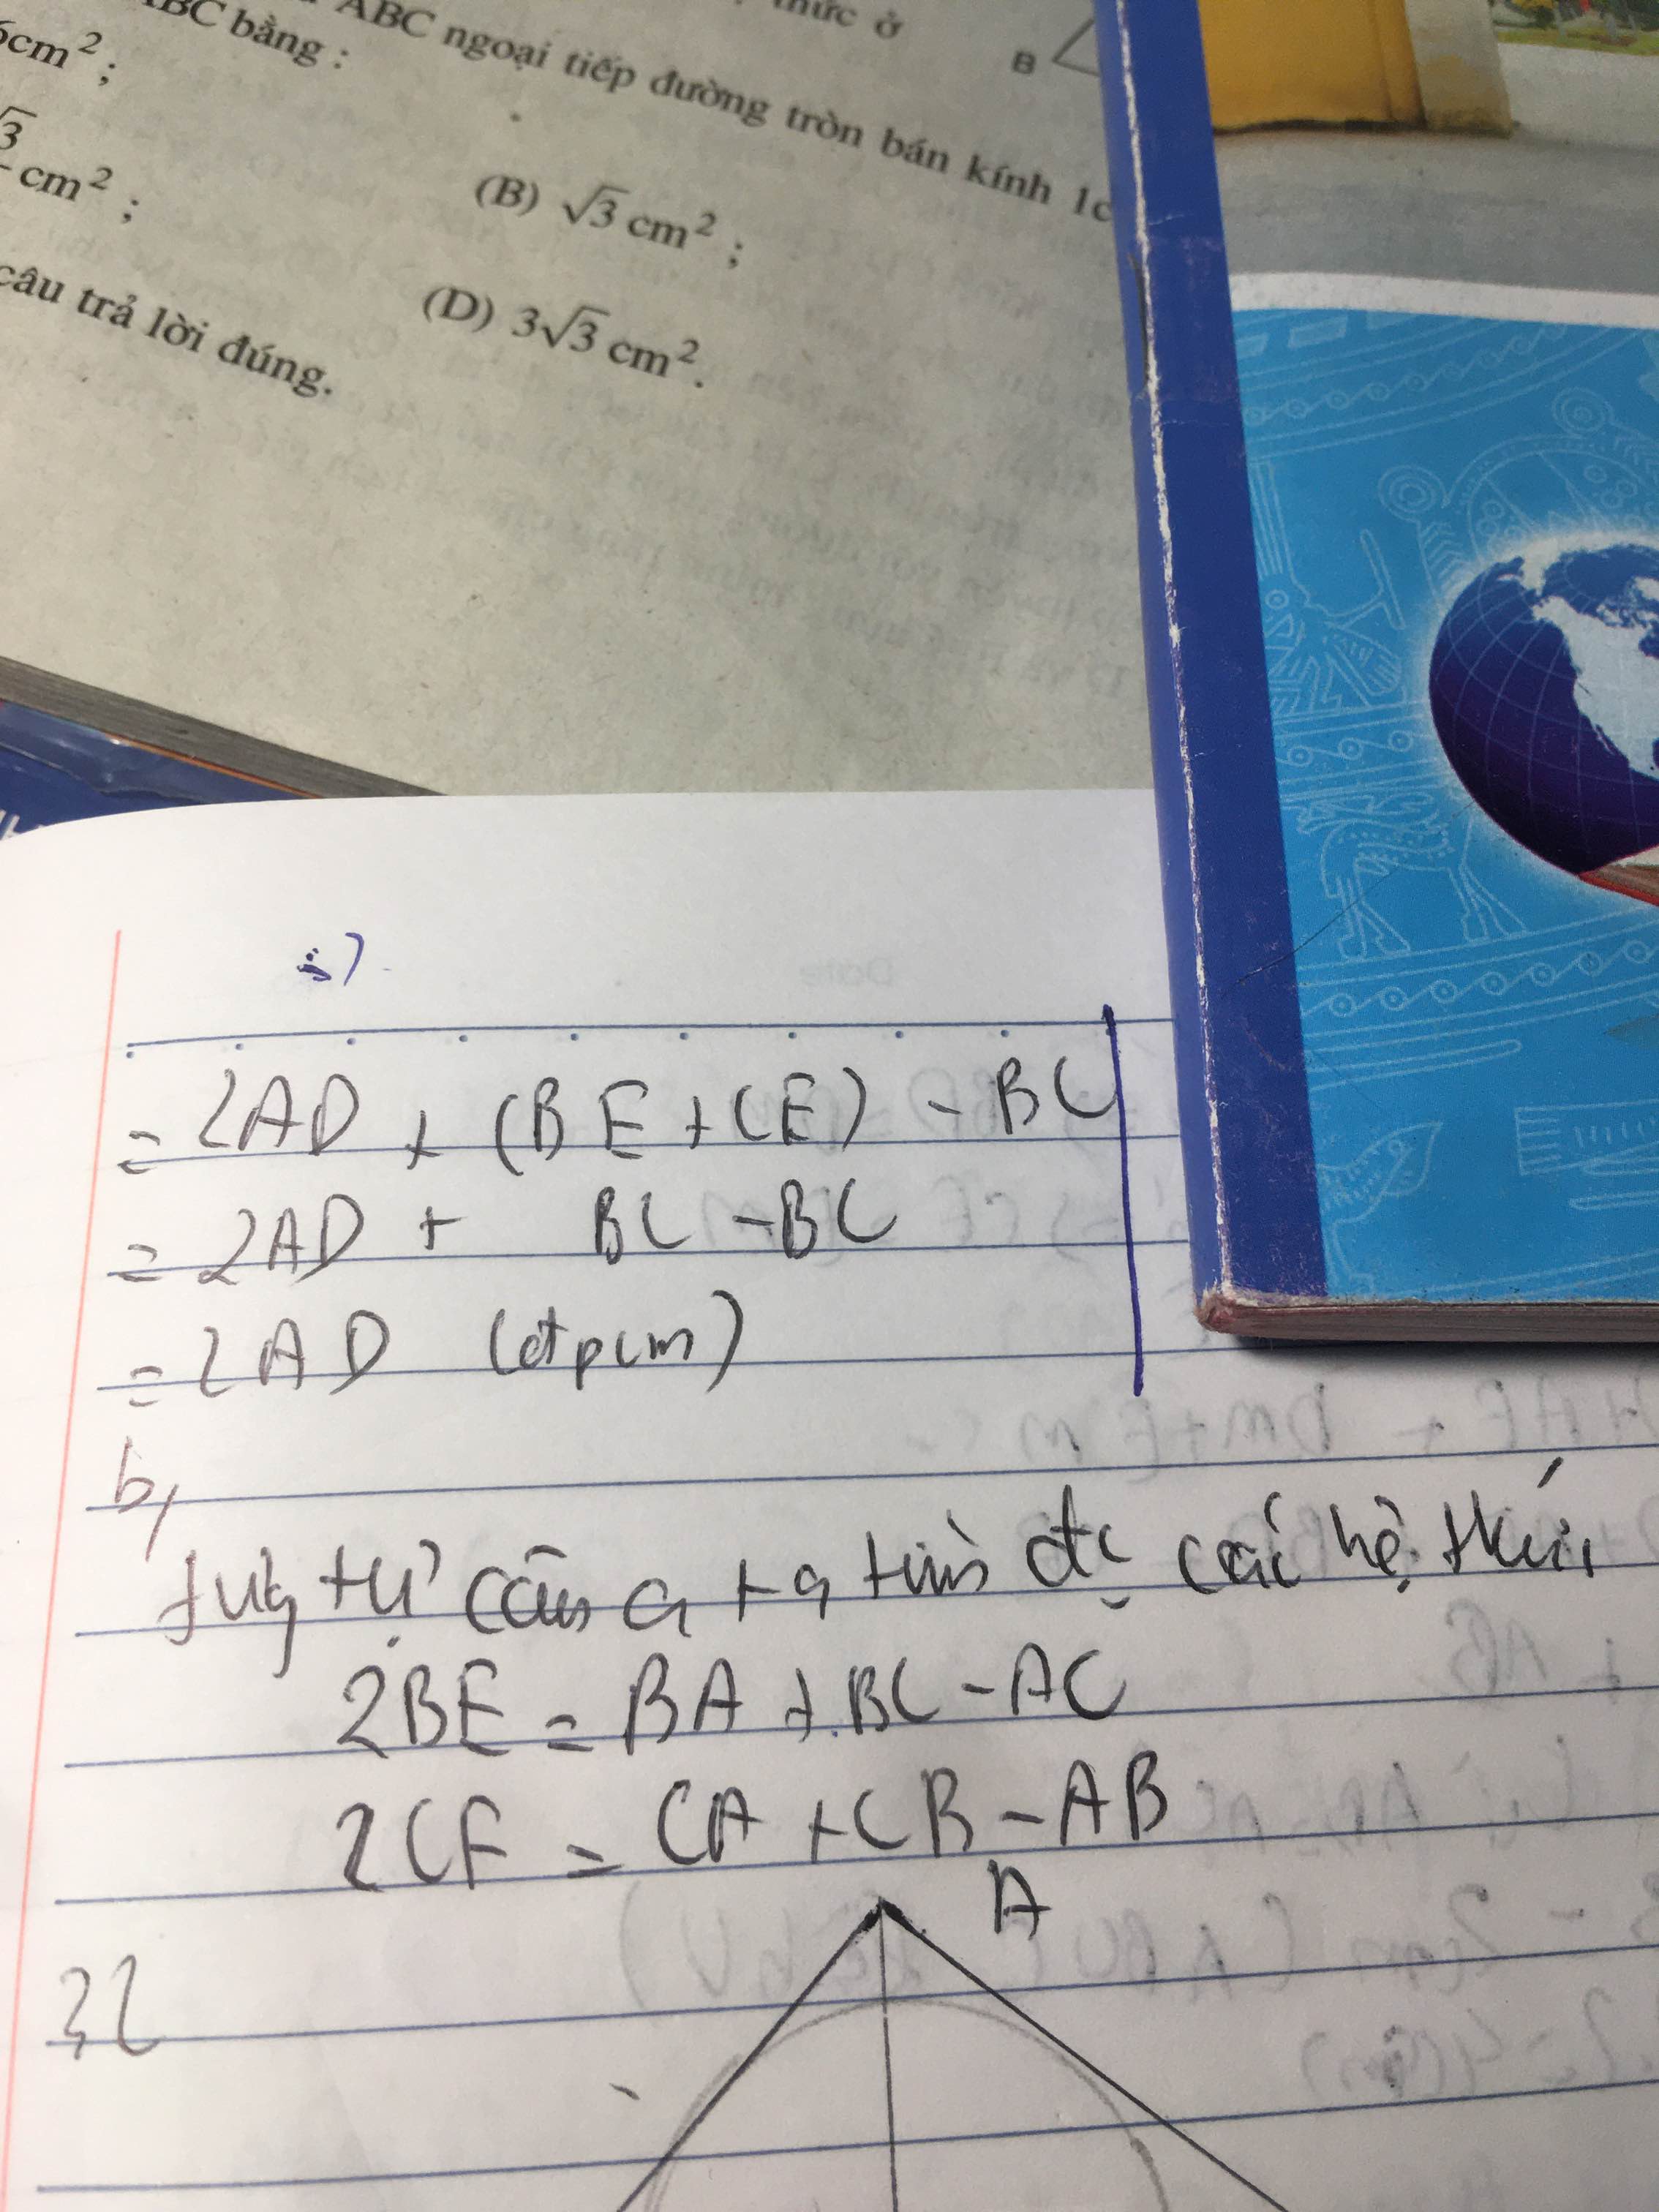 thức ở
B
ABC ngoại tiếp đường tròn bán kính 1c
BC bằng :
6cm²;
(B) √3 cm² ;
√3
cm² ;
(D) 3√3 cm².
câu trả lời đúng.
Date
= 2AD + (BE + CE) - BC
= 2AD + BC - BC
= 2AD (đpcm)
b,
tương tự câu a ta tìm đc các hệ thức
2BE = BA + BC - AC
2CF = CA + CB - AB
A
32